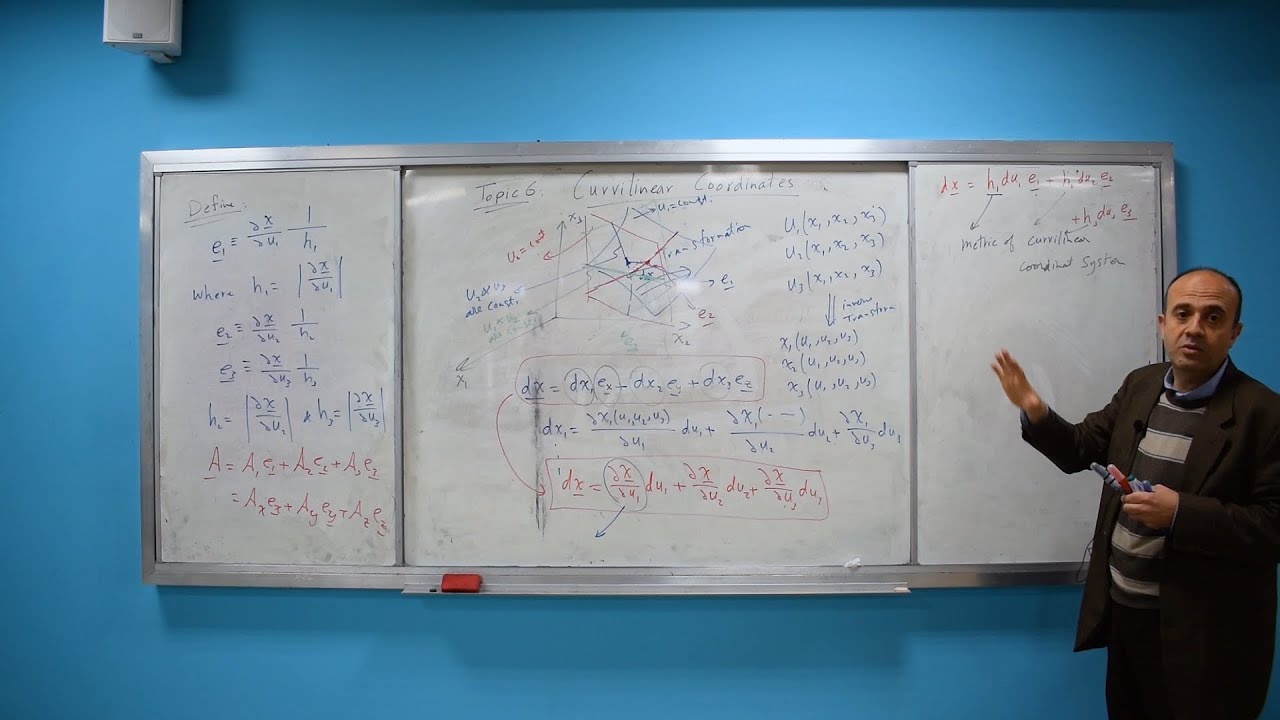 Define:
e₁ ≡ ∂x/∂u₁ 1/h₁
where h₁ = |∂x/∂u₁|
e₂ ≡ ∂x/∂u₂ 1/h₂
e₃ ≡ ∂x/∂u₃ 1/h₃
h₂ = |∂x/∂u₂| & h₃ = |∂x/∂u₃|
A = A₁e₁ + A₂e₂ + A₃e₃
= Aₓeₓ + A_y e_y + A_z e_z
Topic 6: Curvilinear Coordinates
x₃
u₁ = const.
u₂ = const
Transformation
dx
e₁
u₂ & u₃
are const.
e₂
u₁ & u₂
are const.
e₃
x₂
x₁
u₁(x₁, x₂, x₃)
u₂(x₁, x₂, x₃)
u₃(x₁, x₂, x₃)
inverse
Transform
x₁(u₁, u₂, u₃)
x₂(u₁, u₂, u₃)
x₃(u₁, u₂, u₃)
dx = dx₁eₓ + dx₂e_y + dx₃e_z
dx₁ = ∂x₁(u₁,u₂,u₃)/∂u₁ du₁ + ∂x₁(- —)/∂u₂ du₂ + ∂x₁/∂u₃ du₃
dx = ∂x/∂u₁ du₁ + ∂x/∂u₂ du₂ + ∂x/∂u₃ du₃
dx = h₁du₁ e₁ + h₂du₂ e₂
+ h₃du₃ e₃
metric of curvilinear
coordinat System